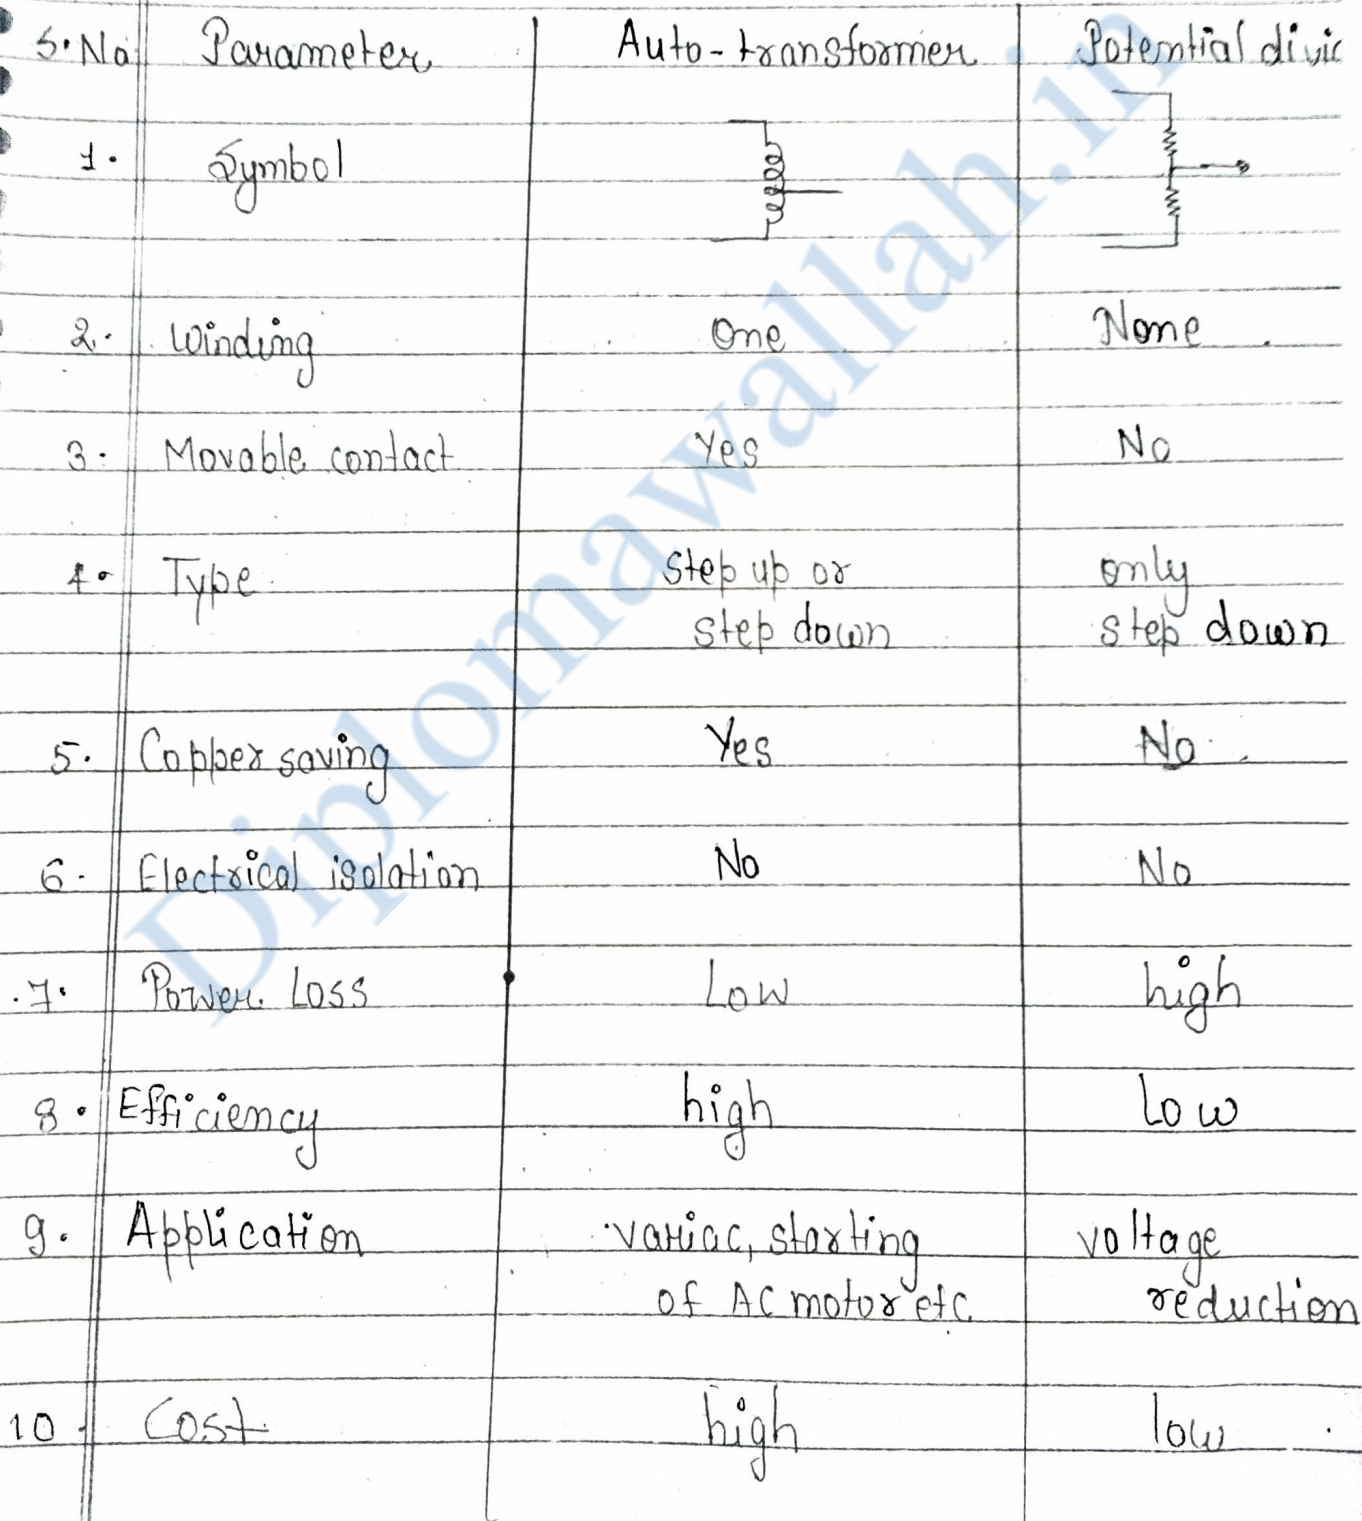 S.No Parameter Auto-transformer Potential divic
1. Symbol
2. Winding One None
3. Movable contact Yes No
4. Type Step up or only
step down step down
5. Copper saving Yes No
6. Electrical isolation No No
7. Power Loss Low high
8. Efficiency high Low
9. Application variac, starting voltage
of AC motor etc. reduction
10 Cost high low
Diplomawallah.in